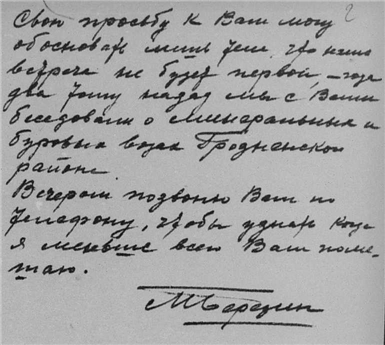 2
Свою просьбу к Вам могу
обосновать лишь тем, что наша
встреча не будет первой, – года
два тому назад мы с Вами
беседовали о минеральных и
буровых водах Гродненского
района.
Вечером позвоню Вам по
телефону, чтобы узнать когда
я меньше всего Вам поме-
шаю.
МБерезин